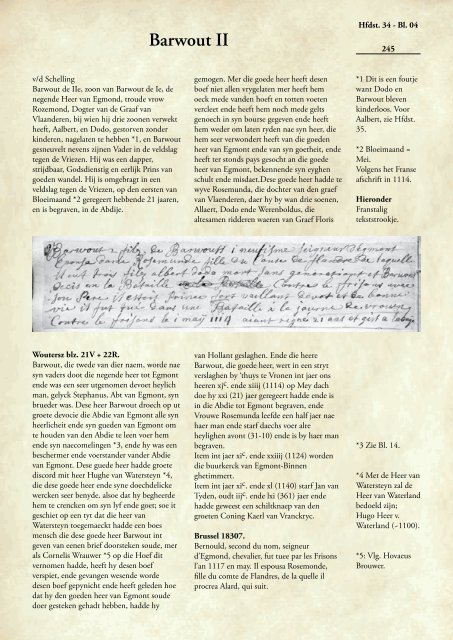 Barwout II
Hfdst. 34 - Bl. 04
245
v/d Schelling
Barwout de IIe, zoon van Barwout de Ie, de
negende Heer van Egmond, troude vrow
Rozemond, Dogter van de Graaf van
Vlaanderen, bij wien hij drie zoonen verwekt
heeft, Aalbert, en Dodo, gestorven zonder
kinderen, nagelaten te hebben *1, en Barwout
gesneuvelt nevens zijnen Vader in de veldslag
tegen de Vriezen. Hij was een dapper,
strijdbaar, Godsdienstig en eerlijk Prins van
goeden wandel. Hij is omgebragt in een
veldslag tegen de Vriezen, op den eersten van
Bloeimaand *2 geregeert hebbende 21 jaaren,
en is begraven, in de Abdije.
gemogen. Mer die goede heer heeft desen
boef niet allen vrygelaten mer heeft hem
oeck mede vanden hoeft en totten voeten
vercleet ende heeft hem noch mede gelts
genoech in syn bourse gegeven ende heeft
hem weder om laten ryden nae syn heer, die
hem seer verwondert heeft van die goeden
heer van Egmont ende van syn goetheit, ende
heeft ter stonds pays gesocht an die goede
heer van Egmont, bekennende syn eyghen
schult ende misdaet.Dese goede heer hadde te
wyve Rosemunda, die dochter van den graef
van Vlaenderen, daer hy by wan drie soenen,
Allaert, Dodo ende Werenboldus, die
altesamen ridderen waeren van Graef Floris
*1 Dit is een foutje
want Dodo en
Barwout bleven
kinderloos. Voor
Aalbert, zie Hfdst.
35.
*2 Bloeimaand =
Mei.
Volgens het Franse
afschrift in 1114.
Hieronder
Franstalig
tekststrookje.
Barwout 2 filz de Barwout 1 neufisme seigneur d'Egmont
Rosemunde fille du de flandre de laquelle
Il eut trois filz albert dodo mort sans generation et Barwout
Decis en la Bataille Contre les frisons avec
Son Pere Il estoit Prince fort vaillant devot et de bonne
vie Il fut tue dans une Bataille a la journe de
Contre les frisons le 1 may 1114 aiant regne 21 ans et gist a
Woutersz blz. 21V + 22R.
Barwout, die twede van dier naem, worde nae
syn vaders doot die negende heer tot Egmont
ende was een seer utgenomen devoet heylich
man, gelyck Stephanus, Abt van Egmont, syn
brueder was. Dese heer Barwout droech op ut
groete devocie die Abdie van Egmont alle syn
heerlicheit ende syn gueden van Egmont om
te houden van den Abdie te leen voer hem
ende syn naecomelingen *3, ende hy was een
beschermer ende voerstander vander Abdie
van Egmont. Dese guede heer hadde groete
discord mit heer Hughe van Watersteyn *4,
die dese goede heer ende syne doechdelicke
wercken seer benyde, alsoe dat hy begheerde
hem te crencken om syn lyf ende goet; soe it
geschiet op een tyt dat die heer van
Watersteyn toegemaeckt hadde een boes
mensch die dese goede heer Barwout int
geven van eenen brief doorsteken soude, mer
als Cornelis Wrauwer *5 op die Hoef dit
vernomen hadde, heeft hy desen boef
verspiet, ende gevangen wesende worde
desen boef gepynicht ende heeft geleden hoe
dat hy den goeden heer van Egmont soude
doer gesteken gehadt hebben, hadde hy
van Hollant geslaghen. Ende die heere
Barwout, die goede heer, wert in een stryt
verslaghen by 'thuys te Vronen int jaer ons
heeren xjᶜ. ende xiiij (1114) op Mey dach
doe hy xxi (21) jaer geregeert hadde ende is
in die Abdie tot Egmont begraven, ende
Vrouwe Rosemunda leefde een half jaer nae
haer man ende starf daechs voer alre
heylighen avont (31-10) ende is by haer man
begraven.
Item int jaer xiᶜ. ende xxiiij (1124) worden
die buurkerck van Egmont-Binnen
ghetimmert.
Item int jaer xiᶜ. ende xl (1140) starf Jan van
Tyden, oudt iijᶜ. ende lxi (361) jaer ende
hadde geweest een schiltknaep van den
groeten Coning Kaerl van Vranckryc.
Brussel 18307.
Bernould, second du nom, seigneur
d'Egmond, chevalier, fut tuee par les Frisons
l'an 1117 en may. Il espousa Rosemonde,
fille du comte de Flandres, de la quelle il
procrea Alard, qui suit.
*3 Zie Bl. 14.
*4 Met de Heer van
Watersteyn zal de
Heer van Waterland
bedoeld zijn;
Hugo Heer v.
Waterland (~1100).
*5: Vlg. Hovaeus
Brouwer.